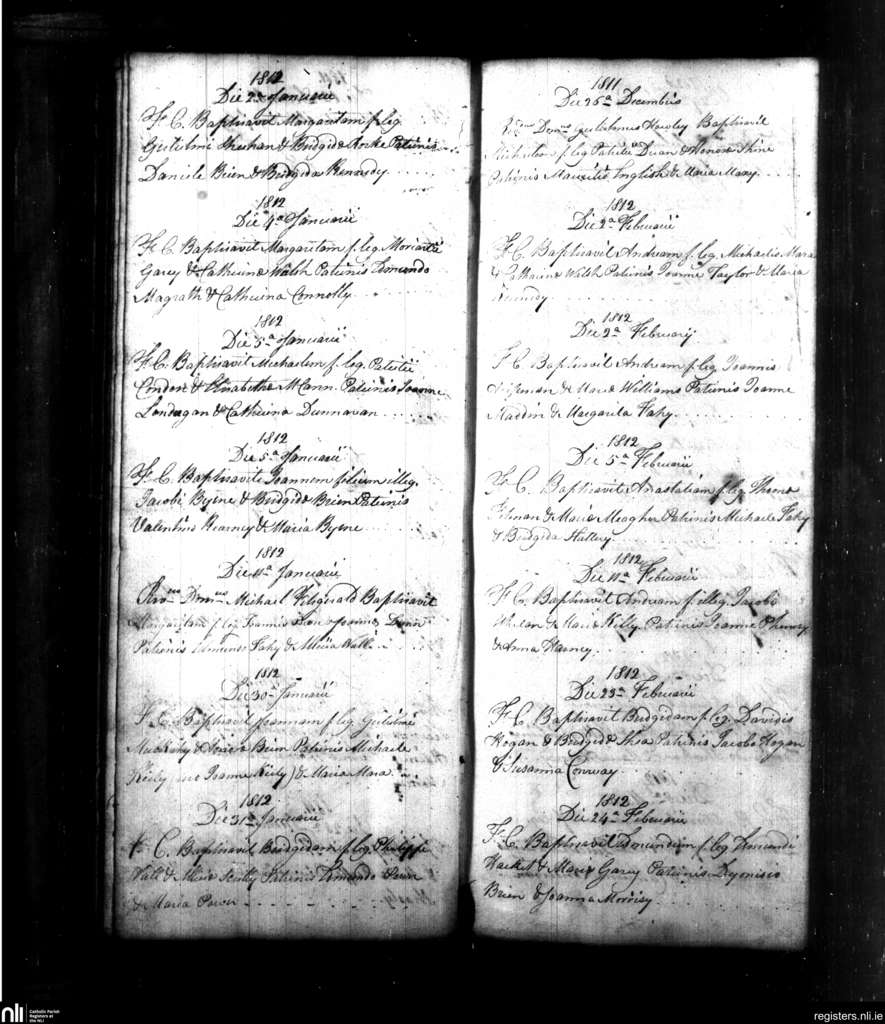 1812
Die 2a Januarii
F. C. Baptisavit Margaritam f. leg.
Gulielmi Shechan & Bridgidæ Rorke Patrinis
Daniele Brien & Bridgida Kennedy
1812
Die 4a Januarii
F. C. Baptisavit Margaritam f. leg. Moriartii
Garey & Catherinæ Walsh Patrinis Edmundo
Magrath & Catherina Connolly
1812
Die 5a Januarii
F. C. Baptisavit Michaelem f. leg. Patritii
Conden & Elinabethæ McCann Patrinis Joanne
Londregan & Catherina Dunnavan
1812
Die 5a Januarii
F. C. Baptisavit Joannem filium illeg.
Jacobi Byrne & Bridgidæ Brien Patrinis
Valentino Kearney & Maria Byrne
1812
Die 11a Januarii
Rvus Dmnus Michael Fitzgerald Baptisavit
Margaritam f. leg. Joannis & Joannæ Dunn
Patrinis Fahy & Maria Wall
1812
Die 30a Januarii
F. C. Baptisavit Joannam f. leg. Gulielmi
& Brien Patrinis Michaele
Kiely Joanne Kiely) & Maria Mara
1812
Die 31a Januarii
F. C. Baptisavit Bridgidam f. leg. Philippi
Wall & Mariæ Scully Patrinis Edmundo Power
& Maria Power
1811
Die 26a Decembris
Dmnus Gulielmus Hawley Baptisavit
f. leg. Patritii Dwan & Honoræ Shine
Patrinis Mauritio English & Maria Many
1812
Die 2a Februarii
F. C. Baptisavit Andream f. leg. Michaelis Mara
& Catharinæ Walsh Patrinis Joanne Taylor & Maria
Kennedy
1812
Die 2a Februarij
F. C. Baptisavit Andream f. leg. Joannis
& Mariæ Williams Patrinis Joanne
Madden & Margarita Fahy
1812
Die 5a Februarii
F. C. Baptisavit Anastatiam f. leg. Thomæ
& Mariæ Meagher Patrinis Michaele Fahy
& Bridgida
1812
Die 11a Februarii
F. C. Baptisavit Andream f. illeg. Jacobi
Whelan & Mariæ Kelly Patrinis Joanne
& Anna Kearney
1812
Die 23a Februarii
F. C. Baptisavit Bridgidam f. leg. Davidis
Hogan & Bridgidæ Shea Patrinis Jacobo Hogan
& Susanna Conway
1812
Die 24a Februarii
F. C. Baptisavit Edmundum f. leg. Edmundi
Hacket & Mariæ Garey Patrinis Dyonisio
Brien & Joanna Morrisy
nli
Catholic Parish
Registers at
the NLI
registers.nli.ie